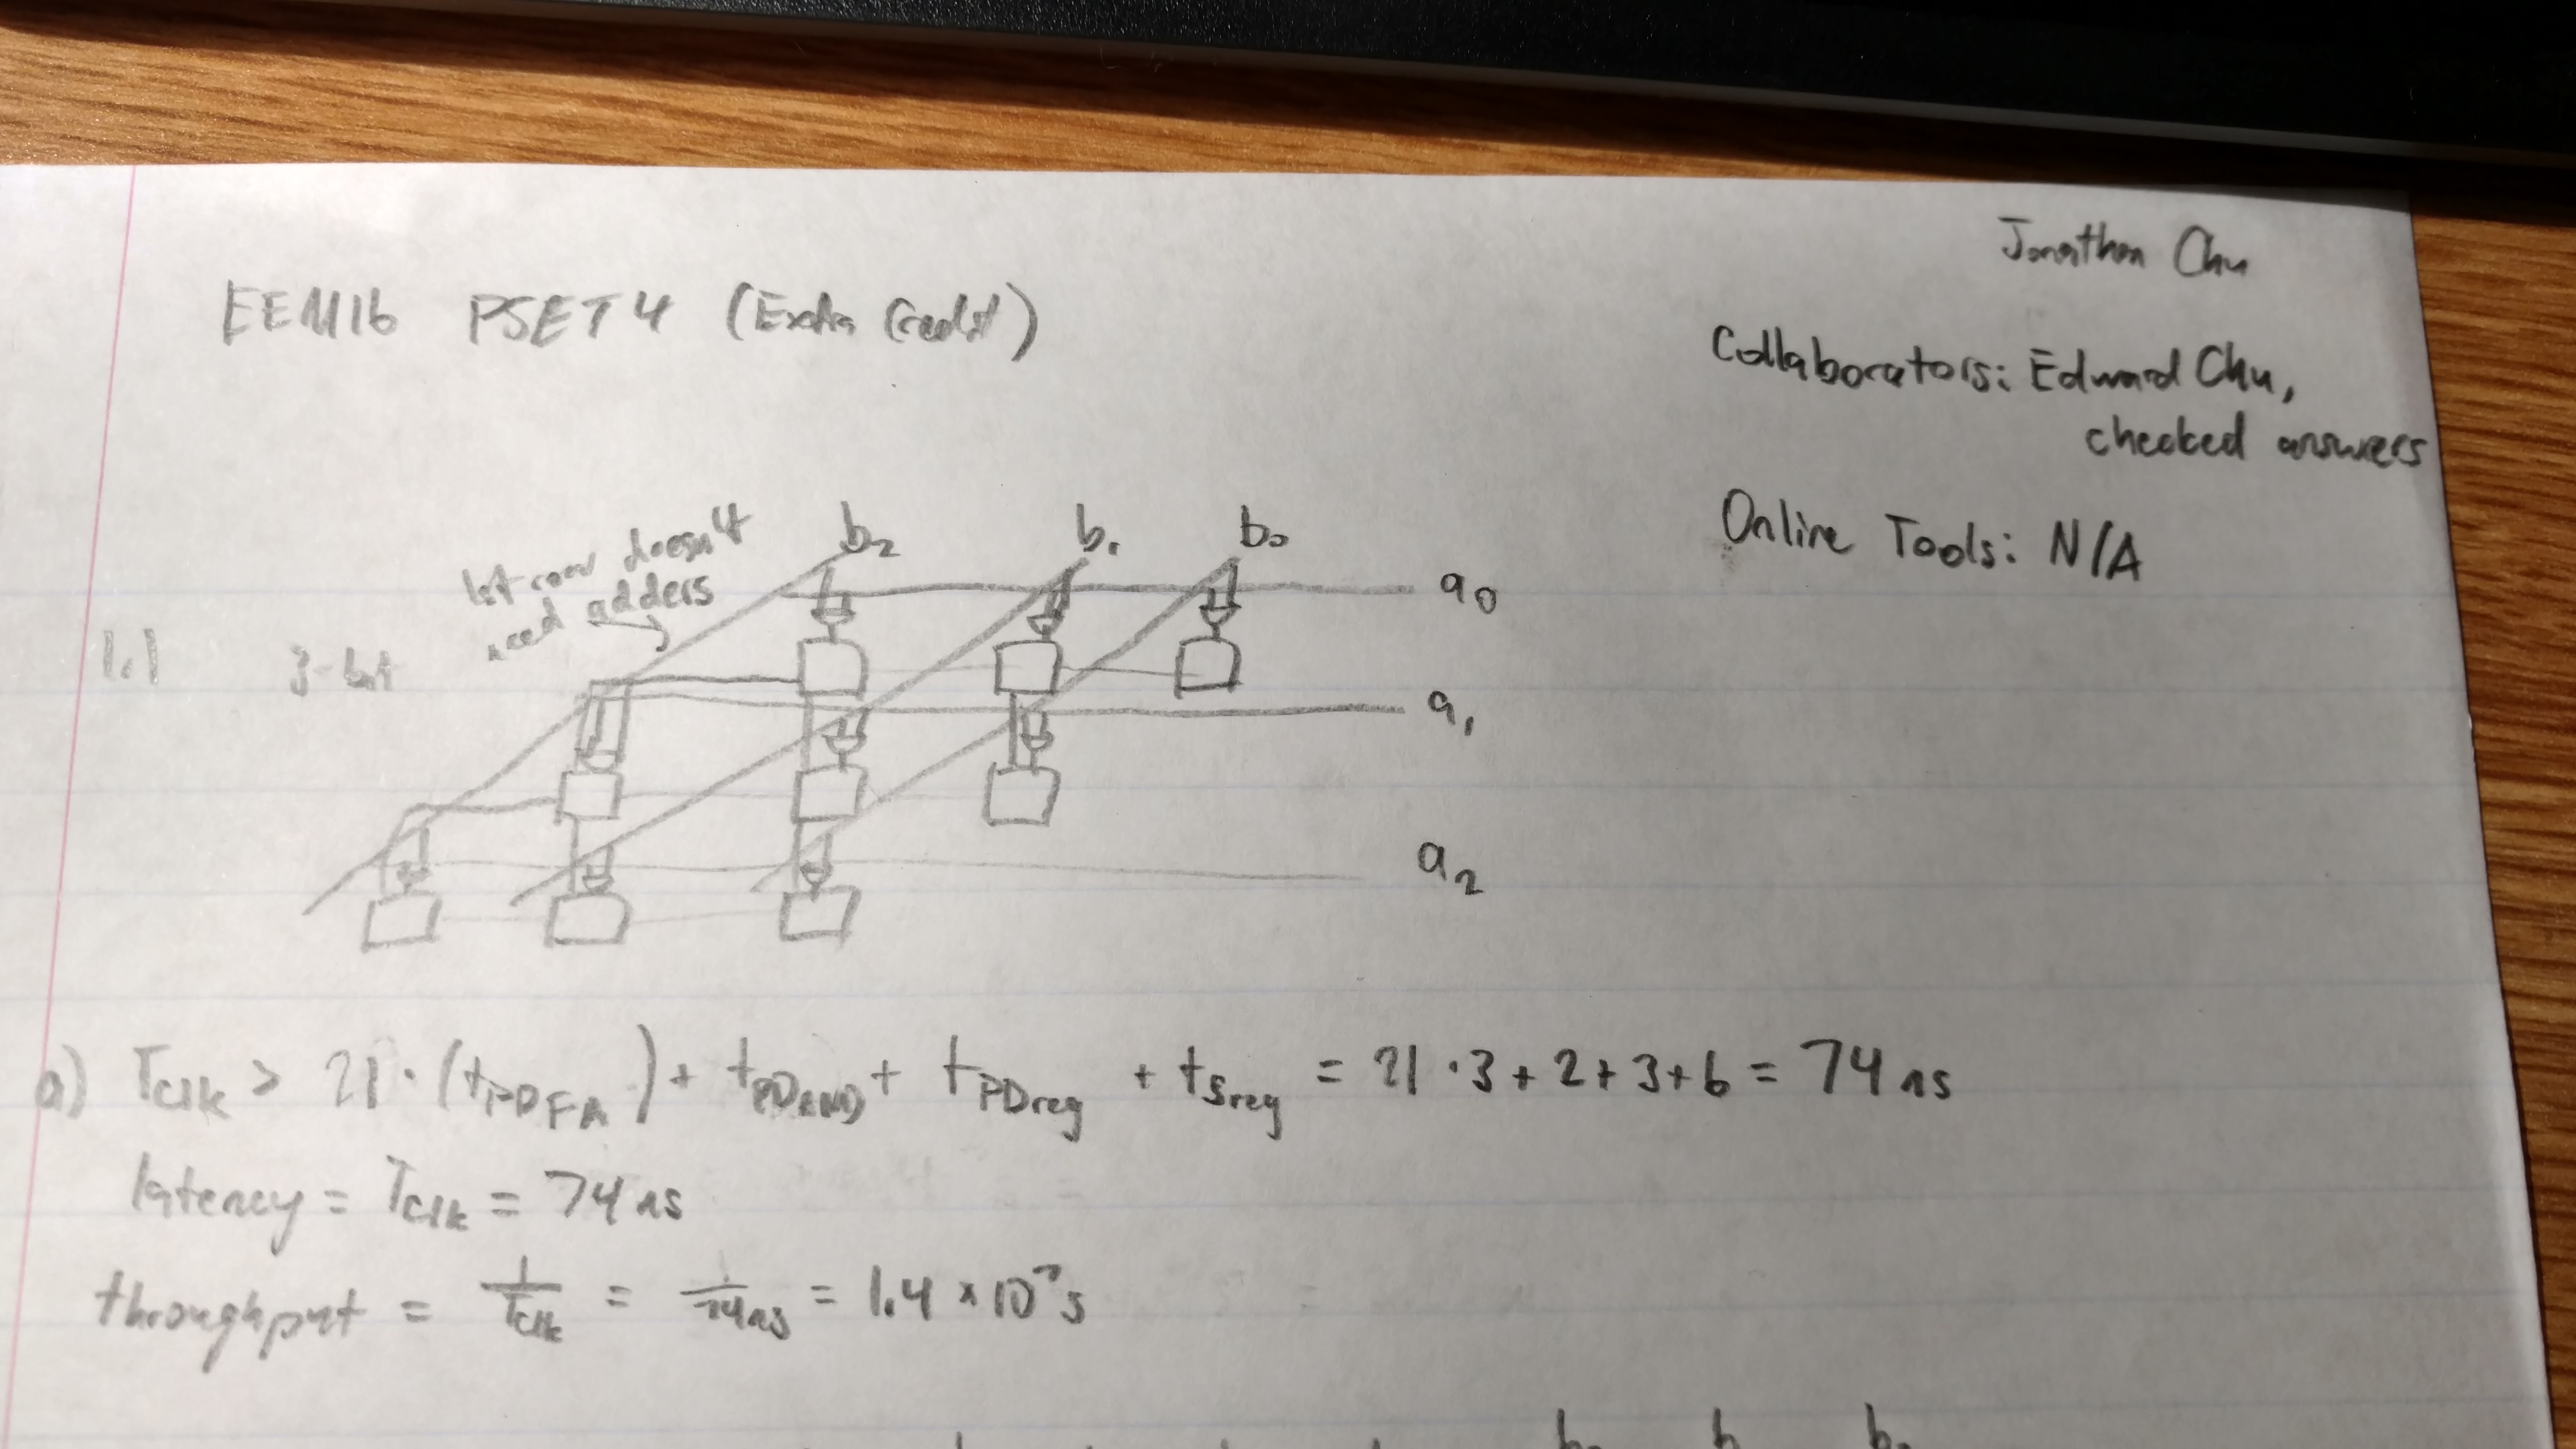 Jonathan Chu
EEM16 PSET 4 (Extra Credit)
Collaborators: Edward Chu,
checked answers
Online Tools: N/A
1st row doesn't
need adders
b₂ b₁ b₀
a₀
1.1 3-bit
a₁
a₂
a) Tclk > 21·(tPDFA) + tPDAND + tPDreg + tSreg = 21·3+2+3+6 = 74 ns
latency = Tclk = 74 ns
throughput = 1/Tclk = 1/74ns = 1.4 × 10⁷ s